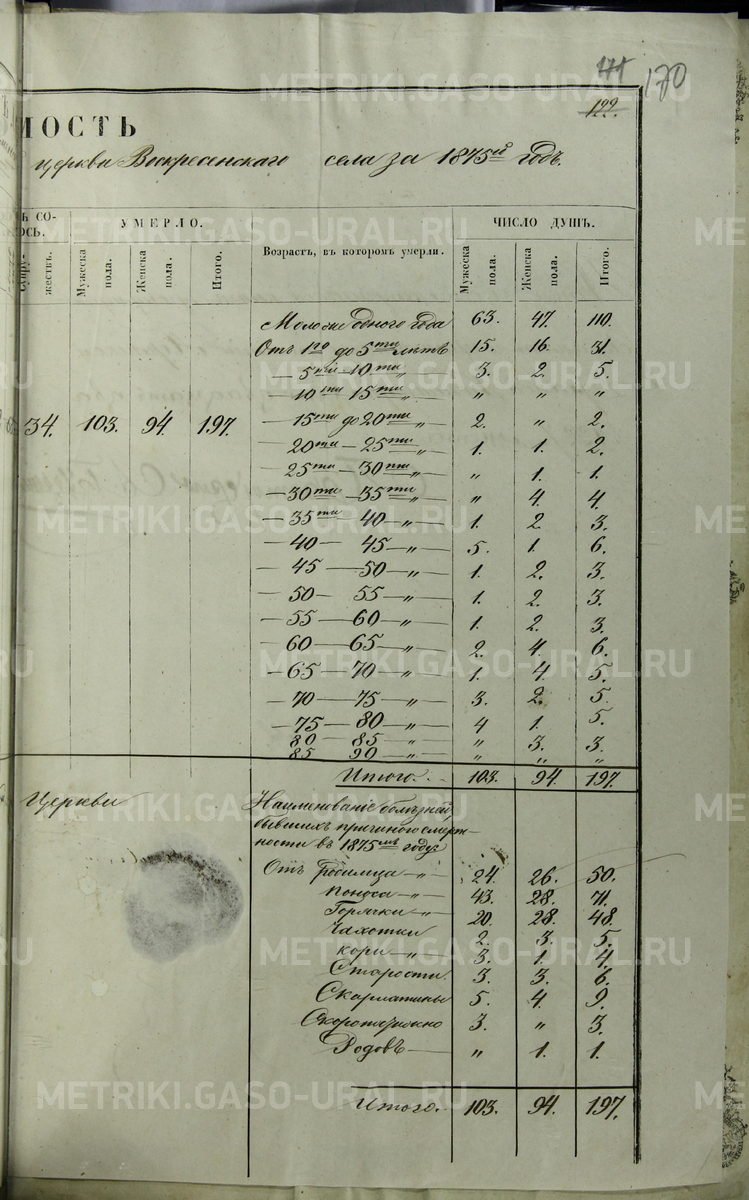 171 170
122.
МОСТЬ
церкви Воскресенскаго села за 1875й годъ.
Ъ СО-
ОСЬ.
УМЕРЛО.
ЧИСЛО ДУШЪ.
Супру-
жествъ.
Мужеска
пола.
Женска
пола.
Итого.
Возрастъ, въ которомъ умерли.
Мужеска
пола.
Женска
пола.
Итого.
Моложе одного года 63. 47. 110.
Отъ 1го до 5ти лѣтъ 15. 16. 31.
— 5ти — 10ти „ 3. 2. 5.
— 10ти 15ти „ „ „ „
34. 103. 94. 197. — 15ти до 20ти „ 2. „ 2.
— 20ти — 25ти „ 1. 1. 2.
25ти — 30ти „ „ 1. 1.
— 30ти — 35ти „ „ 4. 4.
— 35ти — 40 — „ — 1. 2. 3.
— 40 — 45 — „ — 5. 1. 6.
— 45 — 50 — „ — 1. 2. 3.
— 50 — 55 — „ — 1. 2. 3.
— 55 — 60 — „ — 1. 2. 3.
— 60 — 65 — „ — 2. 4. 6.
— 65 — 70 — „ — 1. 4. 5.
— 70 — 75 — „ — 3. 2. 5.
— 75 — 80 — „ — 4 1. 5.
80 — 85 — „ — „ 3. 3.
85 90 — „ — „ „ „
Итого. 103. 94. 197.
Церкви
Наименованіе болѣзней,
бывшихъ причиною смерт-
ности въ 1875мъ году:
Отъ Родимца — „ 24. 26. 50.
Поноса — „ 43. 28. 71.
Горячки — „ 20. 28. 48.
Чахотки 2. 3. 5.
кори — „ 3. 1. 4.
Старости. 3. 3. 6.
Скарлатины 5. 4. 9.
Скоропостижно 3. „ 3.
Родовъ — „ 1. 1.
Итого. 103. 94. 197.
METRIKI.GASO-URAL.RU